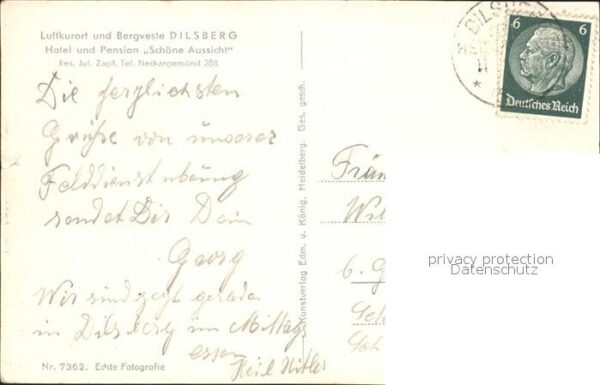 Luftkurort und Bergveste DILSBERG
Hotel und Pension „Schöne Aussicht"
Bes. Jul. Zapf, Tel. Neckargemünd 288
Die herzlichsten
Grüße von unserer
Felddienstübung
sendet Dir Dein
Georg
Wir sind jetzt gerade
in Dilsberg im Mittag
essen Heil Hitler
Nr. 7362. Echte Fotografie
Kunstverlag Edm. v. König, Heidelberg. Ges. gesch.
DILSB
6 6
Deutsches Reich
privacy protection
Datenschutz